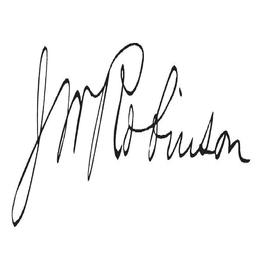 JM Robinson